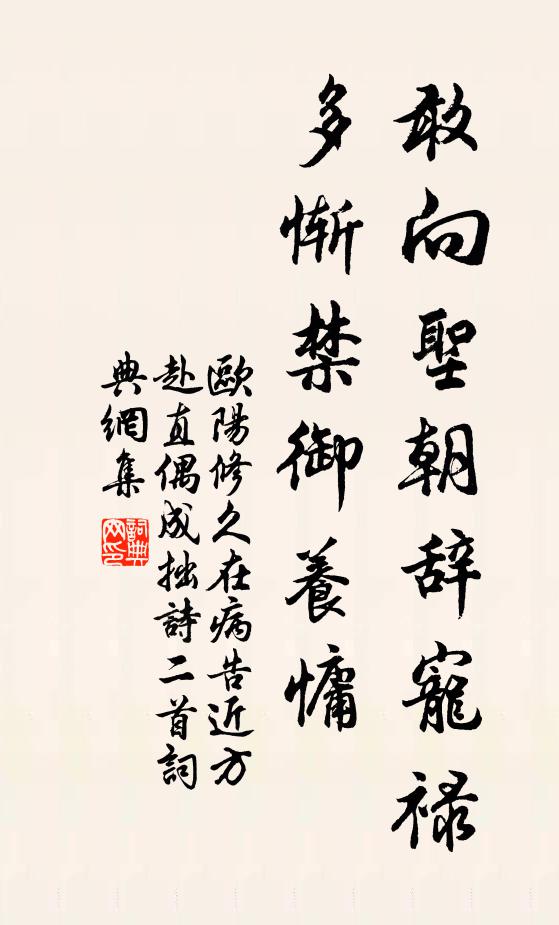 敢向聖朝辞寵禄
多慚禁御養慵
歐陽修久在病告近方
赴直偶成拙詩二首詞
典網集
詞典
网印